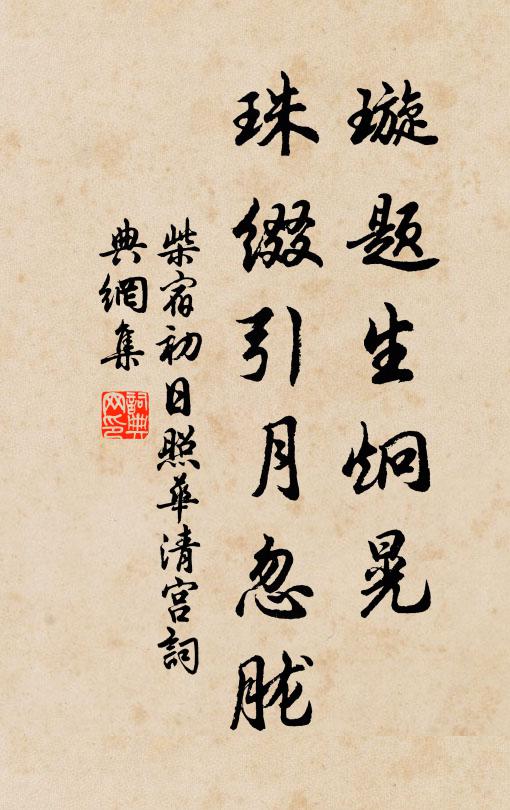 璇题生炯晃
珠缀引月忽胧
柴宿初日照華清宫詞
典網集
詞典
网印